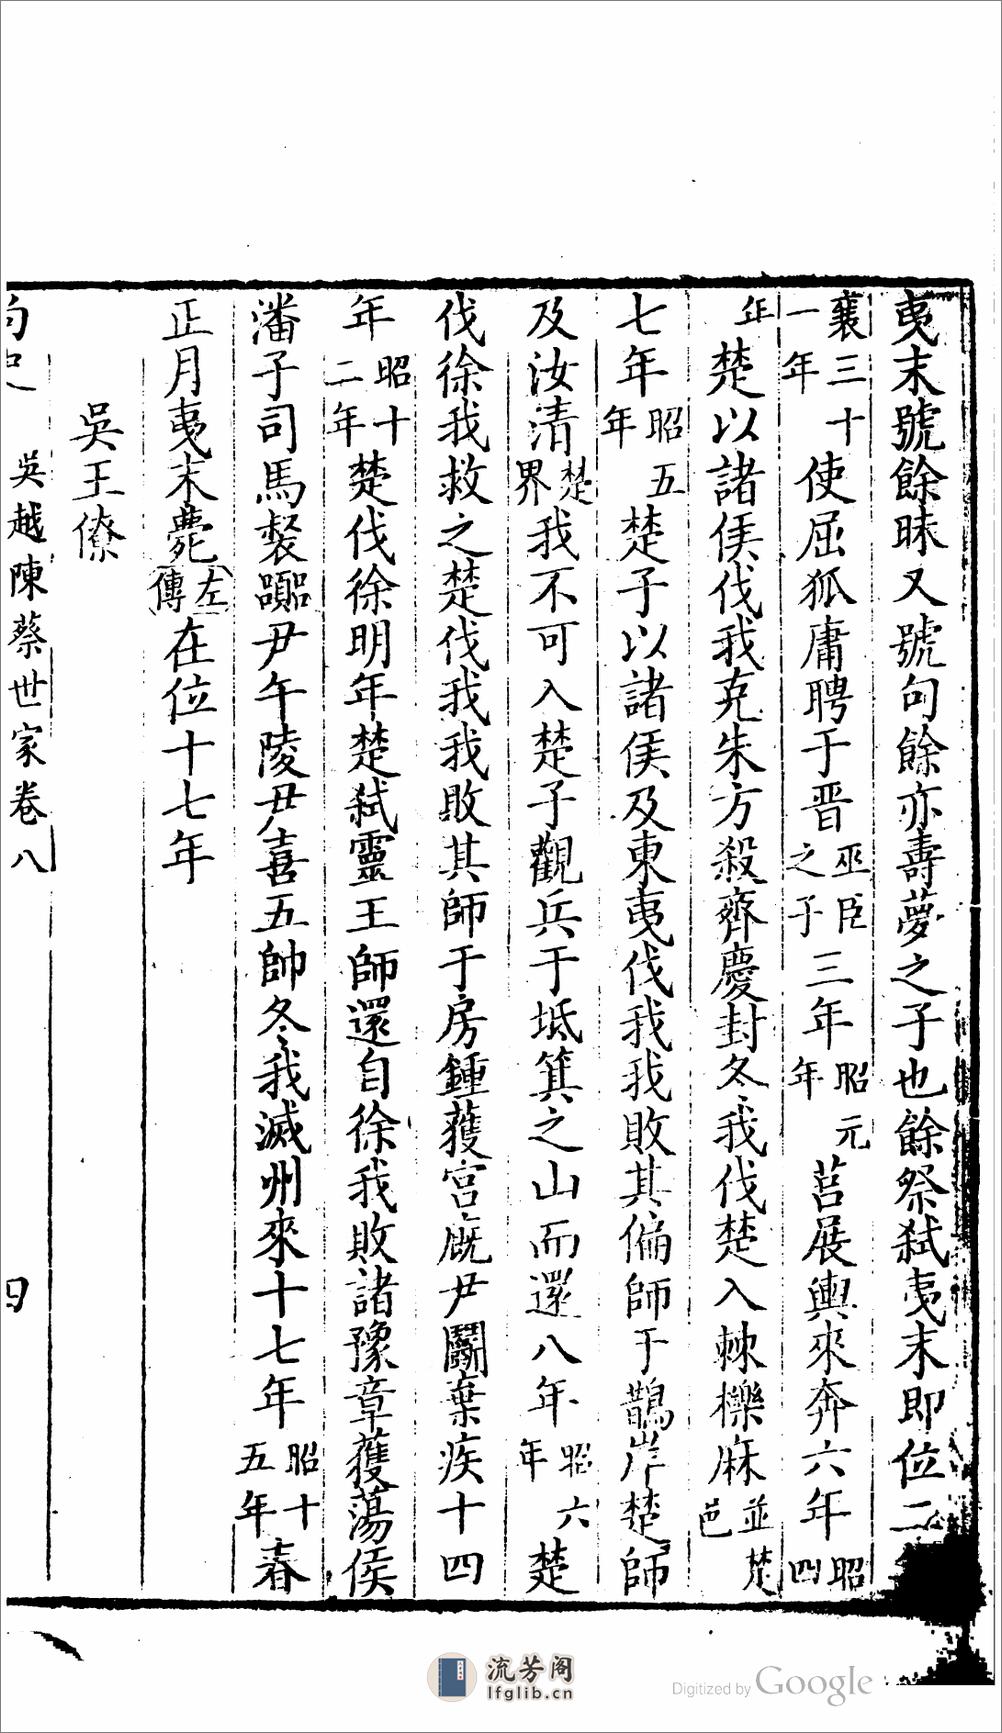 夷末號餘昧又號句餘亦壽夢之子也餘祭弑夷末即位二
襄三十一年使屈狐庸聘于晋巫臣之子三年昭元年莒展輿來奔六年昭四
年楚以諸侯伐我克朱方殺齊慶封冬我伐楚入棘櫟麻並楚邑
七年昭五年楚子以諸侯及東夷伐我我敗其偏師于鵲岸楚師
及汝清楚界我不可入楚子觀兵于坻箕之山而還八年昭六年楚
伐徐我救之楚伐我我敗其師于房鍾獲宮廄尹鬬棄疾十四
年昭十二年楚伐徐明年楚弑靈王師還自徐我敗諸豫章獲蕩侯
潘子司馬督囂尹午陵尹喜五帥冬我滅州來十七年昭十五年春
正月夷末薨左傳在位十七年
吳王僚
吳越陳蔡世家卷八
四
流芳阁
lfglib.cn
Digitized by Google